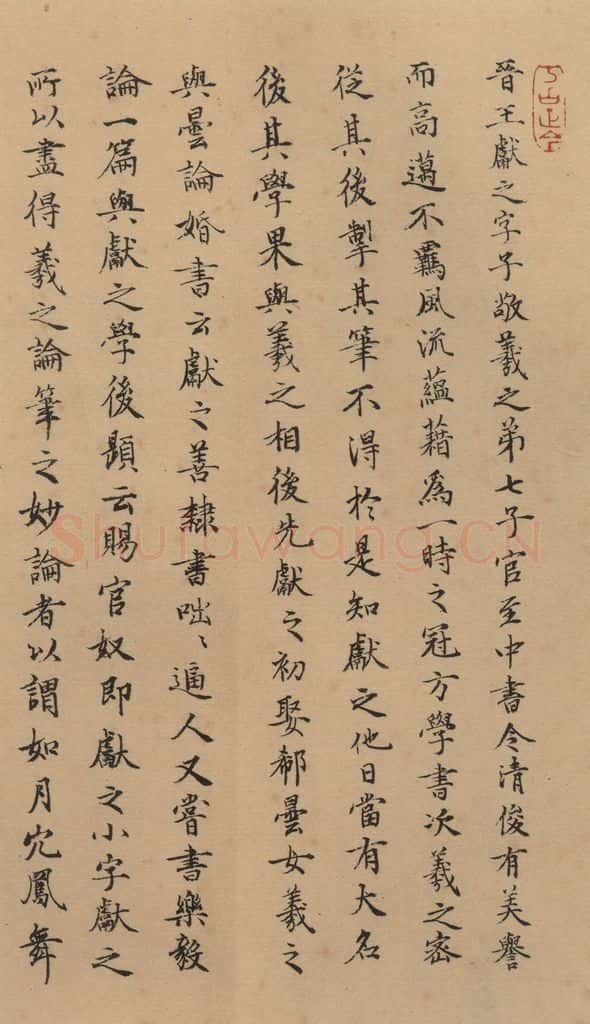 晉王獻之字子敬羲之第七子官至中書令清俊有美譽
而高邁不羈風流蘊藉為一時之冠方學書次羲之密
從其後掣其筆不得於是知獻之他日當有大名
後其學果與羲之相後先獻之初娶郗曇女羲之
與曇論婚書云獻之善隸書咄〻逼人又嘗書樂毅
論一篇與獻之學後題云賜官奴即獻之小字獻之
所以盡得羲之論筆之妙論者以謂如月穴鳳舞
Shufawang.CN